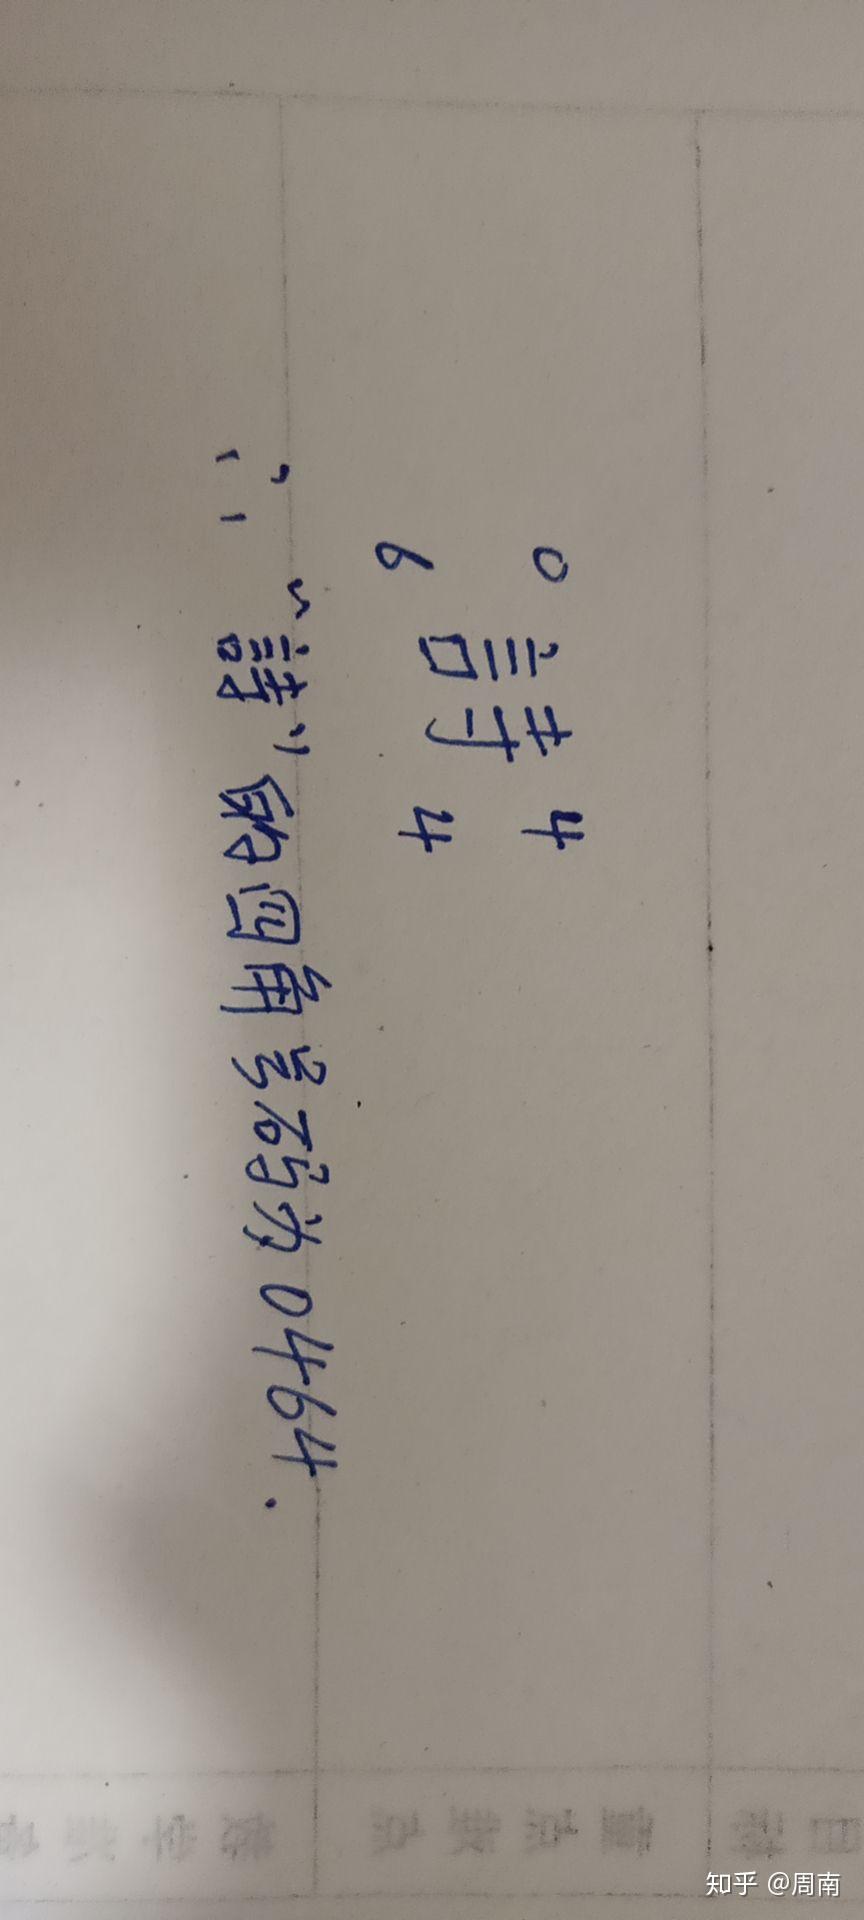 0 4
詩
6 4
∴ “詩”的四角号码为0464.
知乎 @周南